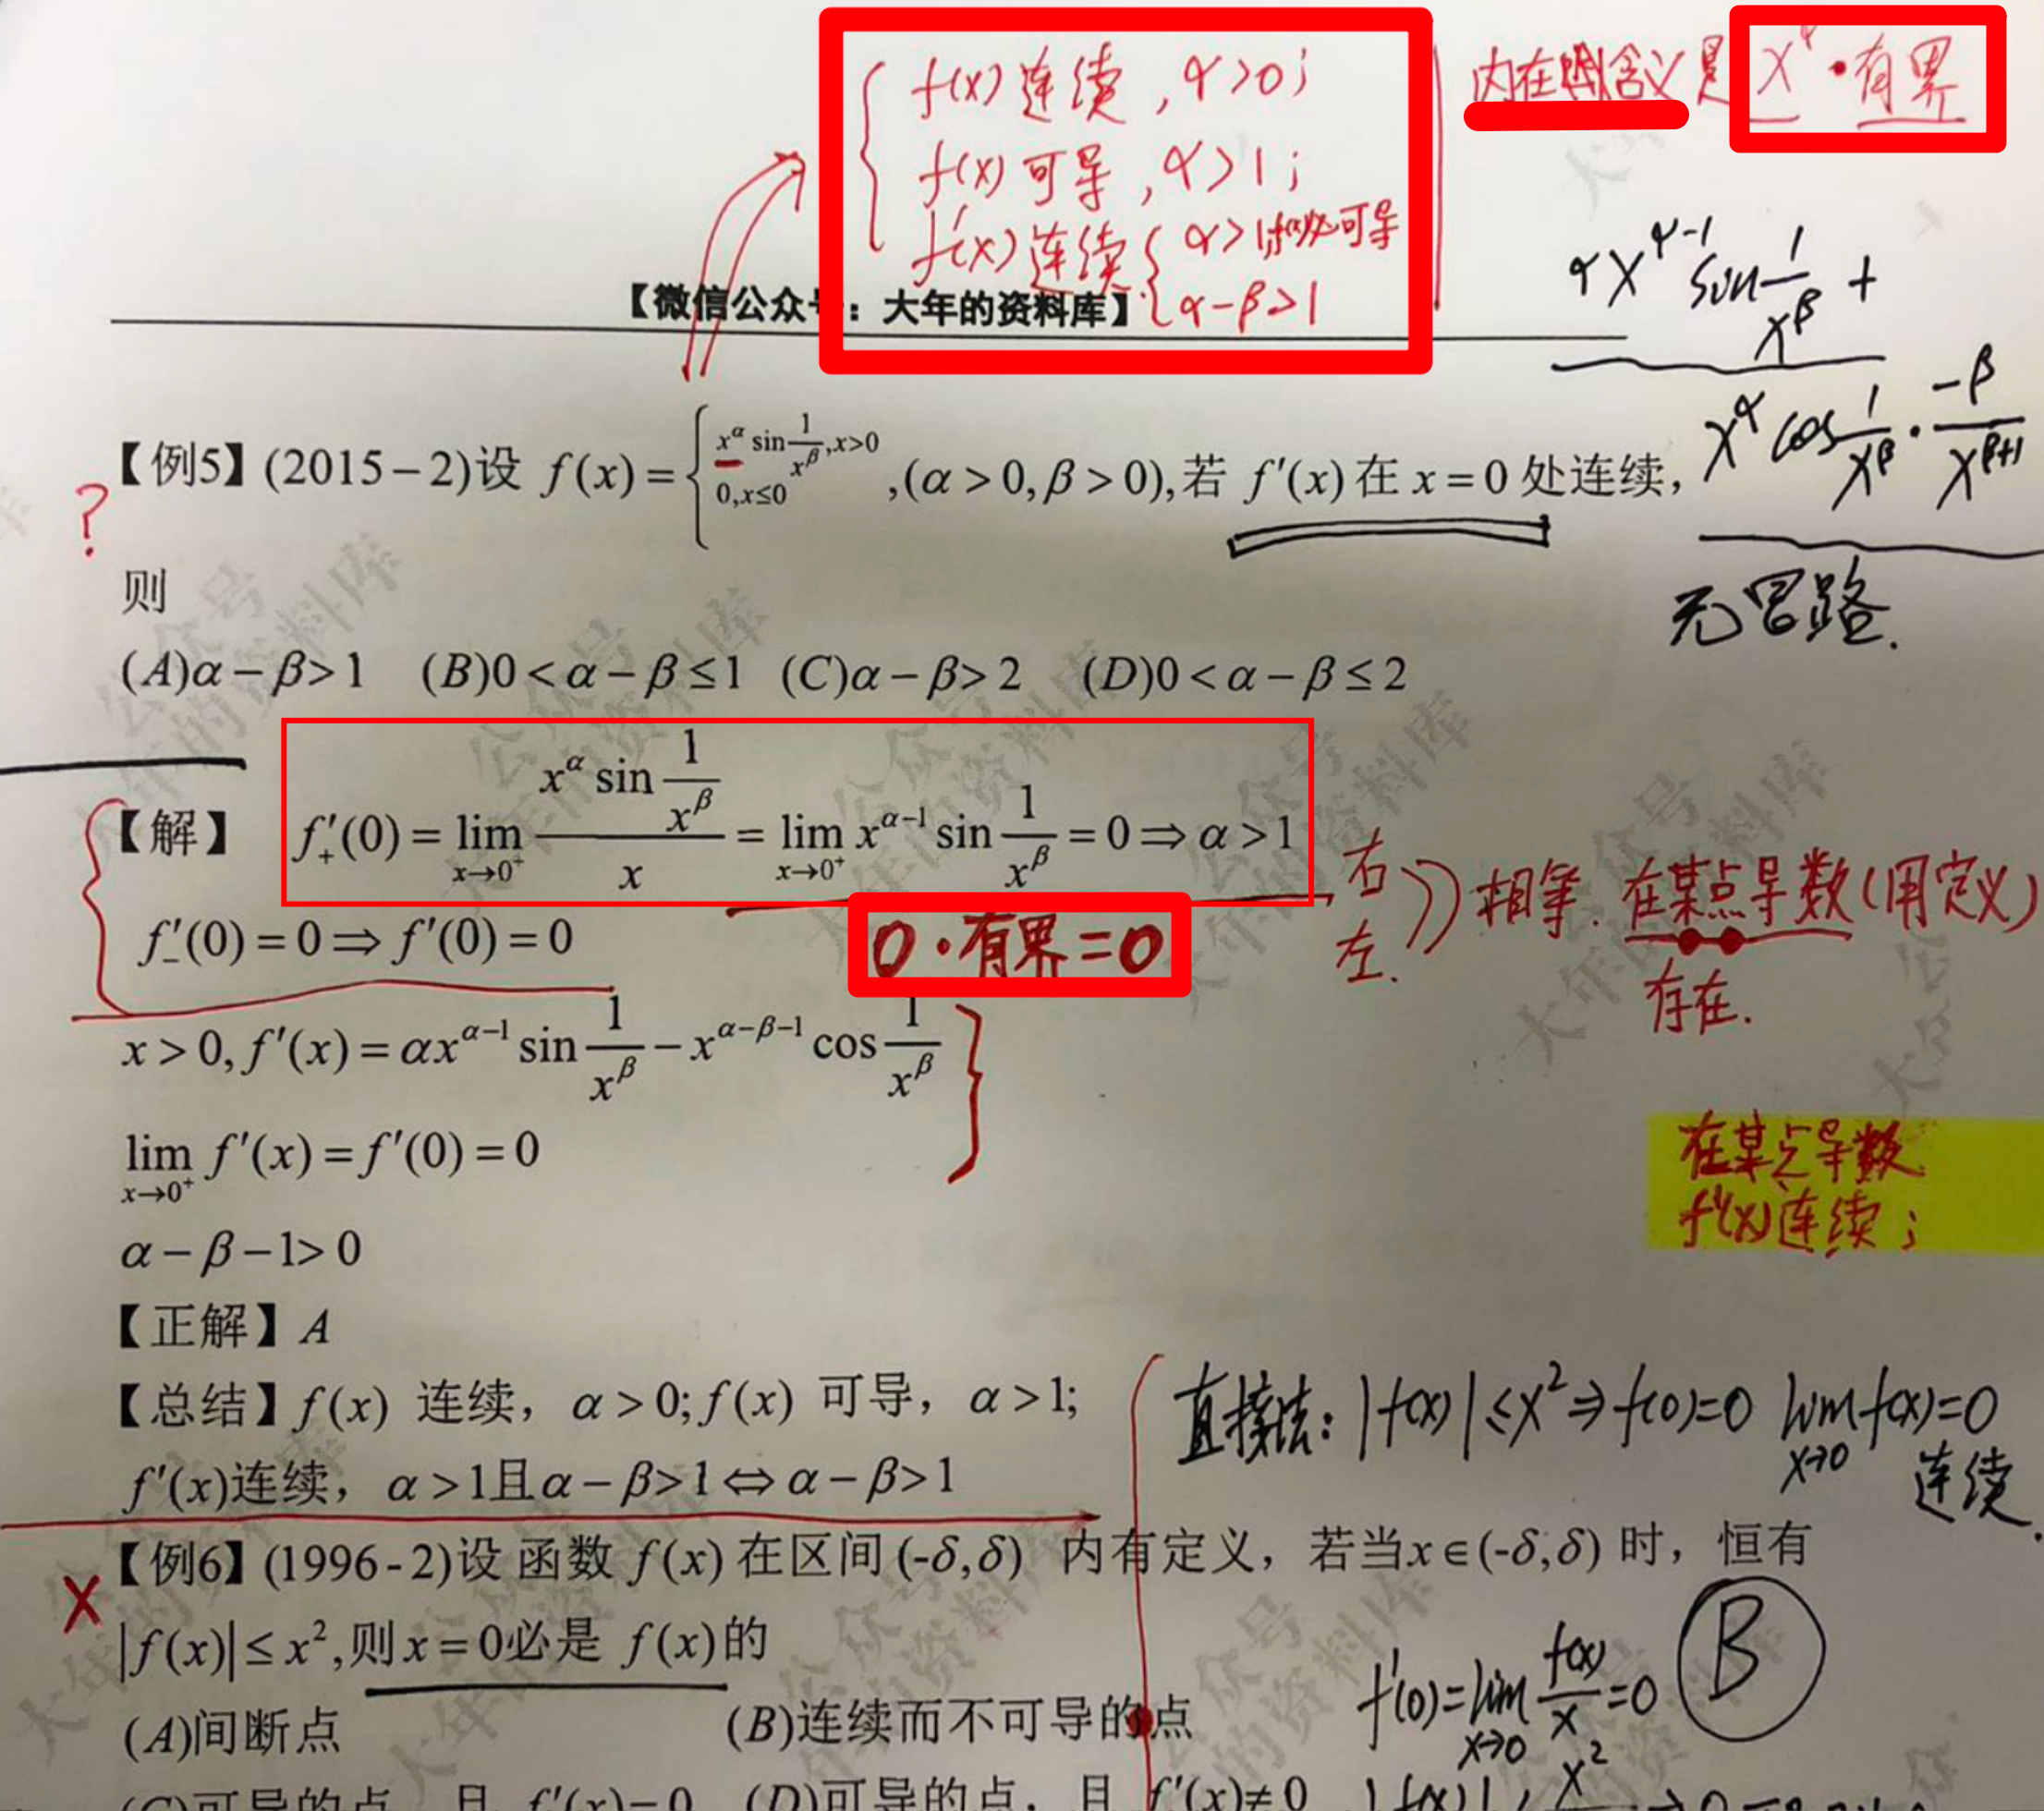 f(x) 连续, α>0;
内在含义是 x^α·有界
f(x) 可导, α>1;
f'(x) 连续 { α>1, f(x)必可导
α-β>1
αx^{α-1} sin 1/x^β +
x^α cos 1/x^β · -β/x^{β+1}
【微信公众号：大年的资料库】
【例5】(2015-2)设 f(x) = { x^α sin 1/x^β, x>0
0, x≤0 ,(α>0, β>0),若 f'(x)在 x=0 处连续,
?
则
无冒路.
(A)α-β>1 (B)0<α-β≤1 (C)α-β>2 (D)0<α-β≤2
【解】 f'_+(0) = lim_{x→0^+} (x^α sin 1/x^β)/x = lim_{x→0^+} x^{α-1} sin 1/x^β = 0 ⇒ α>1
右
左. 相等. 在某点导数(用定义)
存在.
f'_-(0) = 0 ⇒ f'(0) = 0
0·有界=0
x>0, f'(x) = αx^{α-1} sin 1/x^β - x^{α-β-1} cos 1/x^β
lim_{x→0^+} f'(x) = f'(0) = 0
在某点导数
f'(x)连续;
α-β-1>0
【正解】A
【总结】f(x) 连续，α>0; f(x) 可导，α>1;
f'(x)连续，α>1且α-β>1 ⇔ α-β>1
直接法: |f(x)|≤x^2 ⇒ f(0)=0 lim_{x→0} f(x)=0
连续.
【例6】(1996-2)设 函数 f(x) 在区间 (-δ,δ) 内有定义，若当x∈(-δ,δ) 时，恒有
X
|f(x)|≤x^2,则x=0必是 f(x)的
B
(A)间断点 (B)连续而不可导的点
f'(0)=lim_{x→0} f(x)/x=0
(C)可导的点，且 f'(x)=0 (D)可导的点，且 f'(x)≠0
大年的资料库
公众号